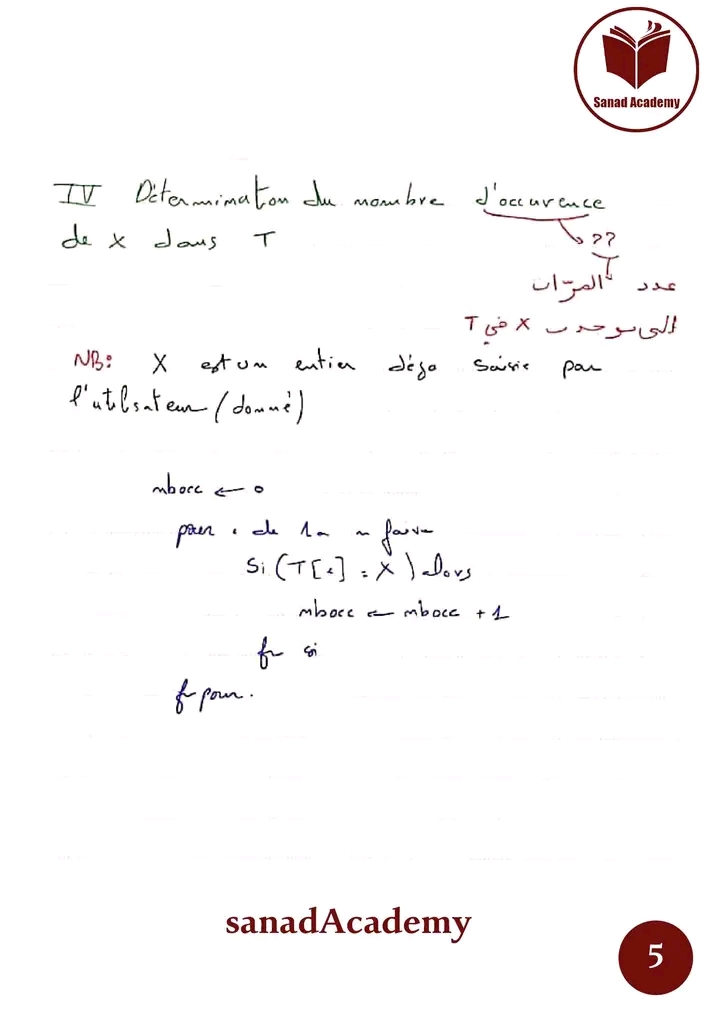 Sanad Academy
IV Détermination du nombre d'occurence
de x dans T
??
عدد المرّات
التي يوجد ب X في T
NB: X est un entier déja saisie par
l'utilsateur (donné)
nbocc ← 0
pour i de 1 a n faire
Si (T[i] = X) alors
nbocc ← nbocc + 1
fin si
fin pour.
sanadAcademy
5